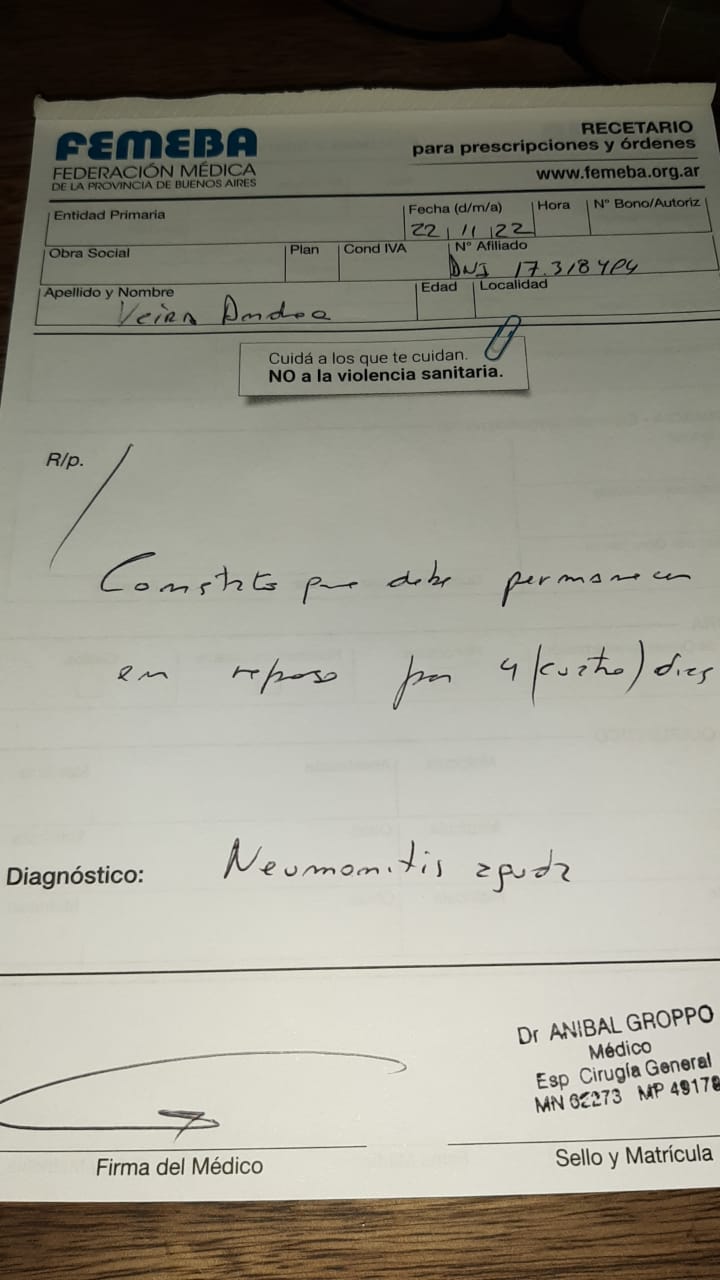 FEMEBA
FEDERACIÓN MÉDICA
DE LA PROVINCIA DE BUENOS AIRES
RECETARIO
para prescripciones y órdenes
www.femeba.org.ar
Entidad Primaria
Fecha (d/m/a)
22 11 22
Hora
N° Bono/Autoriz
Obra Social
Plan
Cond IVA
N° Afiliado
DNI 17.318
Apellido y Nombre
Veira Andrea
Edad
Localidad
Cuidá a los que te cuidan.
NO a la violencia sanitaria.
R/p.
Constato que debe permanecer
en reposo por 4 (cuatro) dias
Diagnóstico: Neumonitis aguda
Dr ANIBAL GROPPO
Médico
Esp Cirugía General
MN 62273 MP 49178
Firma del Médico
Sello y Matrícula